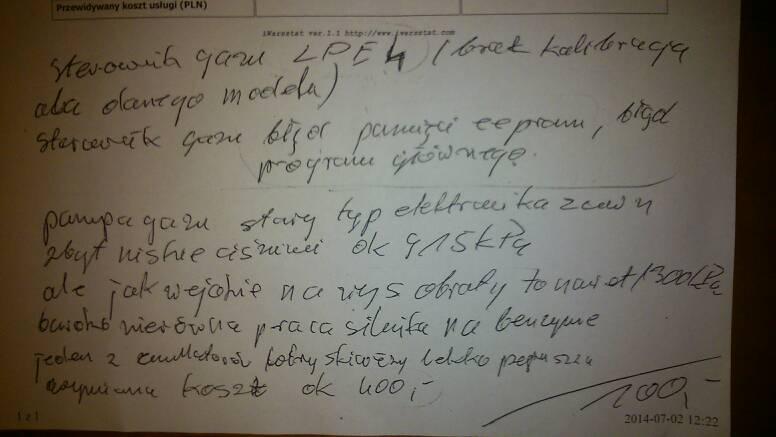 Przewidywany koszt usługi (PLN)
iWarsztat ver.1.1 http://www.iwarsztat.com
sterownik gazu LPE4 (brak kalibracji
dla danego modelu)
sterownik gazu błąd pamięci eepromu, błąd
programu głównego.
pompa gazu stary typ elektronika
zbyt niskie ciśnienie ok 915kPa
ale jak wejdzie na wys obroty to nawet 1300kPa
bardzo nierówna praca silnika na benzynie
jeden z emulatorów lekko
wymiana koszt ok 400,-
100,-
1 z 1
2014-07-02 12:22